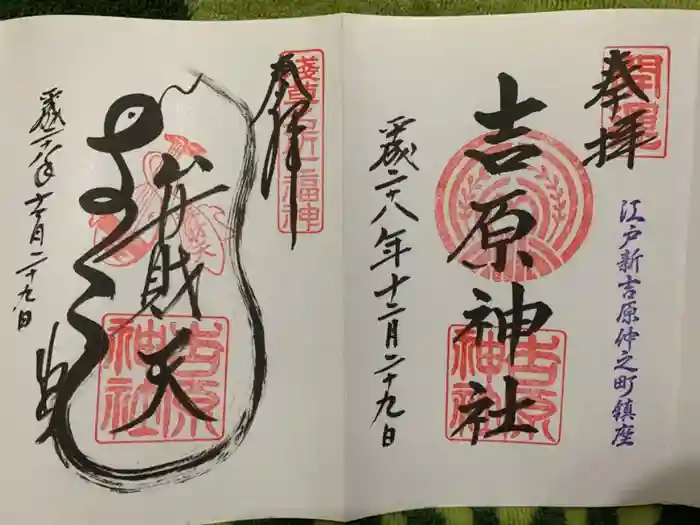 奉拝
開運
江戸新吉原仲之町鎮座
吉原神社
吉原神社
平成二十八年十二月二十九日
奉拝
浅草名所七福神
弁財天
吉原神社
平成二十八年十二月二十九日